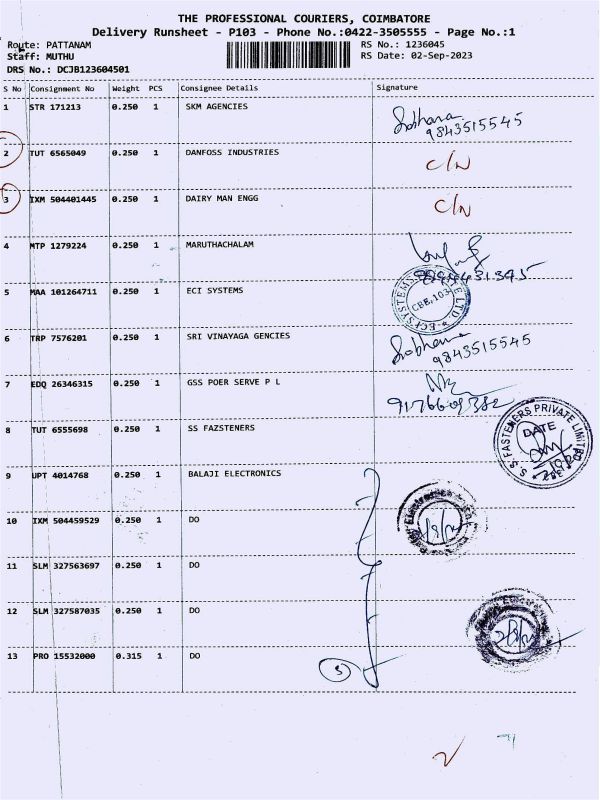 THE PROFESSIONAL COURIERS, COIMBATORE
Delivery Runsheet - P103 - Phone No.:0422-3505555 - Page No.:1
Route: PATTANAM RS No.: 1236045
Staff: MUTHU RS Date: 02-Sep-2023
DRS No.: DCJB123604501
S No Consignment No Weight PCS Consignee Details Signature
1 STR 171213 0.250 1 SKM AGENCIES Sobhana
9843515545
2 TUT 6565049 0.250 1 DANFOSS INDUSTRIES C/N
3 IXM 504401445 0.250 1 DAIRY MAN ENGG C/N
4 MTP 1279224 0.250 1 MARUTHACHALAM
5 MAA 101264711 0.250 1 ECI SYSTEMS
CBE.103
6 TRP 7576201 0.250 1 SRI VINAYAGA GENCIES Sobhana
9843515545
7 EDQ 26346315 0.250 1 GSS POER SERVE P L
8 TUT 6555698 0.250 1 SS FAZSTENERS
S.S. FASTENERS PRIVATE LIMITED
DATE
9 UPT 4014768 0.250 1 BALAJI ELECTRONICS
10 IXM 504459529 0.250 1 DO
11 SLM 327563697 0.250 1 DO
12 SLM 327587035 0.250 1 DO
13 PRO 15532000 0.315 1 DO
5